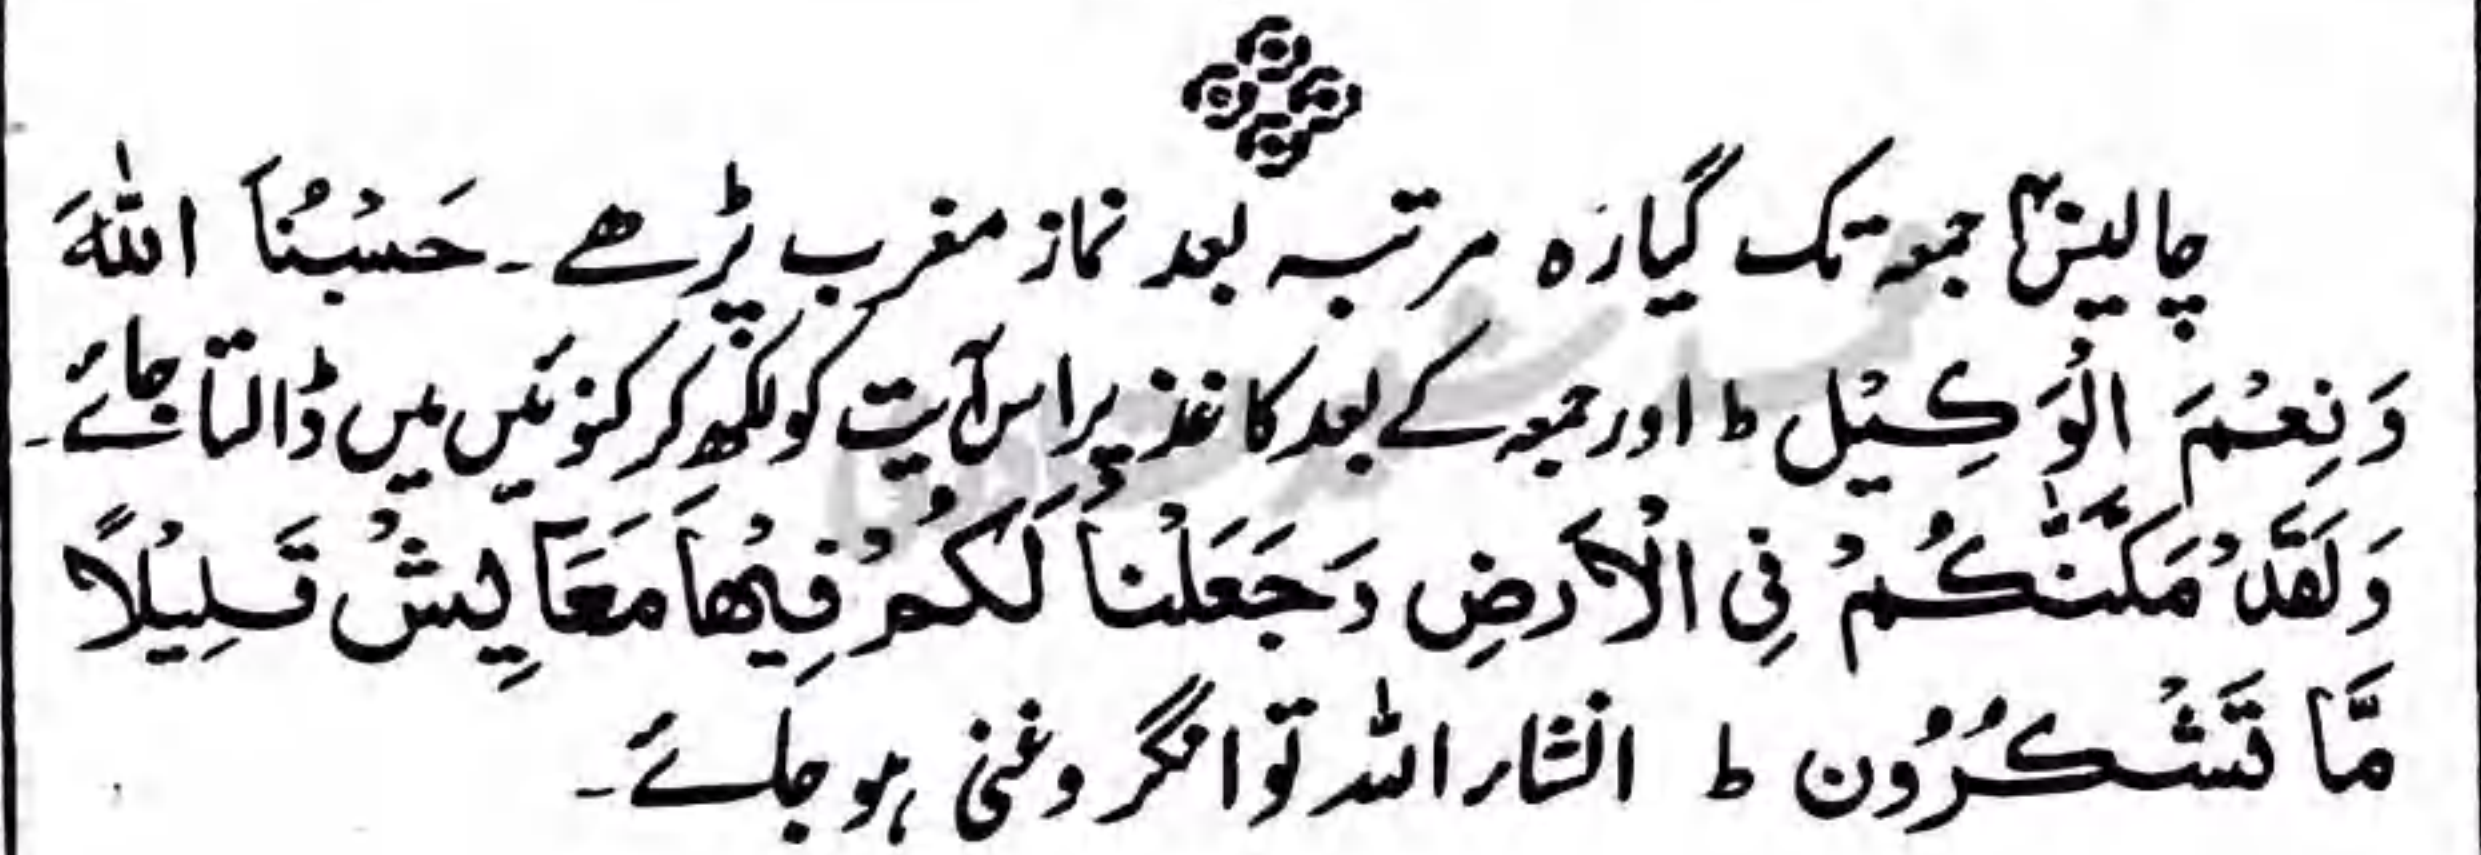 چالیس جمعہ تک گیارہ مرتبہ بعد نماز مغرب پڑھے۔ حَسْبُنَا اللّٰهَ
وَنِعْمَ الْوَكِيْل ط اور جمعہ کے بعد کاغذ پر اس آیت کو لکھ کر کنوئیں میں ڈالتا جائے۔
وَلَقَدْ مَكَّنّٰكُمْ فِي الْاَرْضِ وَجَعَلْنَا لَكُمْ فِيْهَا مَعَايِشْ قَلِيْلًا
مَّا تَشْكُرُوْن ط انشاء اللہ توانگر و غنی ہو جائے۔